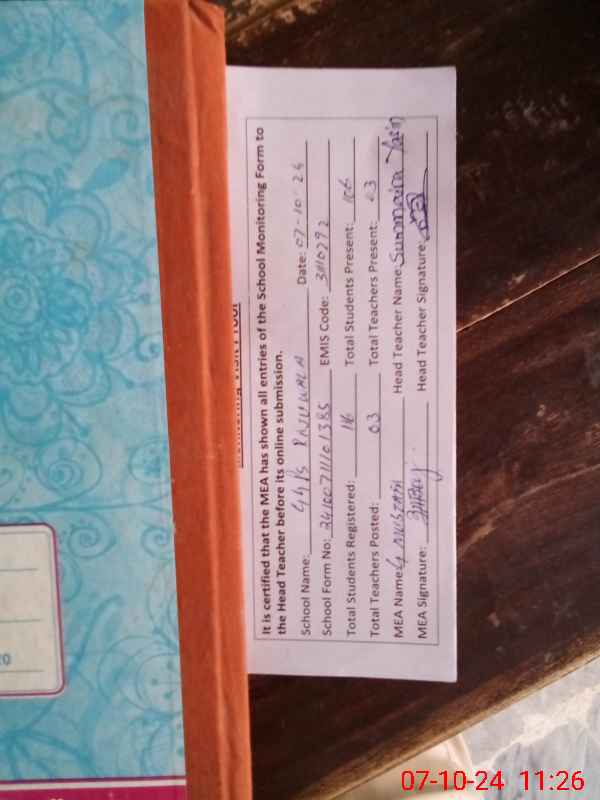 It is certified that the MEA has shown all entries of the School Monitoring Form to
the Head Teacher before its online submission.
School Name: GGPS RAJUWALA Date: 07-10-24
School Form No: EMIS Code: 31110292
Total Students Registered: 116 Total Students Present: 106
Total Teachers Posted: 03 Total Teachers Present: 03
MEA Name: Head Teacher Name: Summaira Yasin
MEA Signature: Head Teacher Signature:
20
07-10-24 11:26